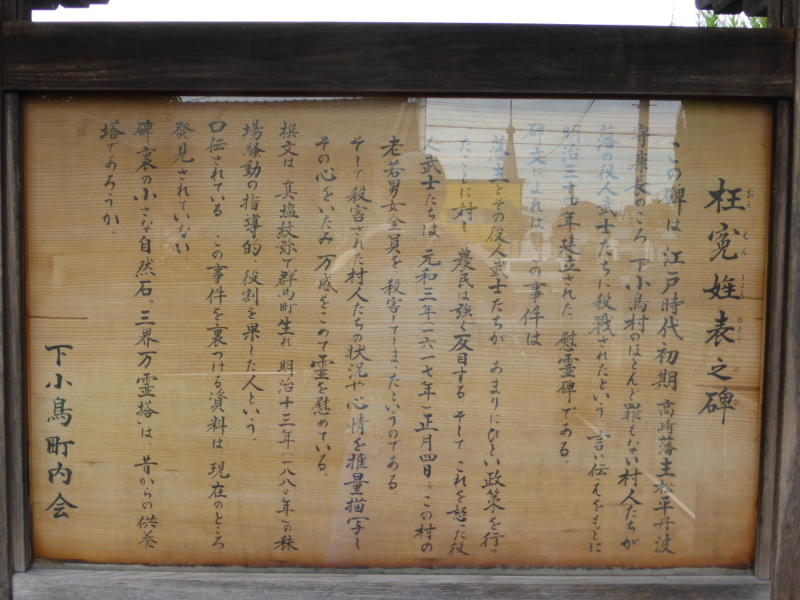 枉冤姓表之碑
この碑は、江戸時代初期 高崎藩主松平丹波
守康長のころ、下小鳥村のほとんど罪もない村人たちが
藩の役人武士たちに殺戮されたという、言い伝えをもとに
明治三十四年建立された、慰霊碑である。
碑文によれば、この事件は
藩主とその役人武士たちが、あまりにひどい政策を行っ
たことに対し、農民は強く反目する、そして、これを怒った役
人武士たちは、元和三年(一六一七年)正月四日、この村の
老若男女全員を、殺害してしまったというのである
そして殺害された村人たちの状況や心情を推量描写し
その心をいたみ万感をこめて霊を慰めている。
撰文は、真塩紋弥で群馬町生れ、明治十三年(一八八〇年)の秣
場騒動の指導的役割を果した人という。
口伝されている、この事件を裏づける資料は、現在のところ
発見されていない。
碑裏の小さな自然石、「三界万霊塔」は、昔からの供養
塔であろうか。
下小鳥町内会